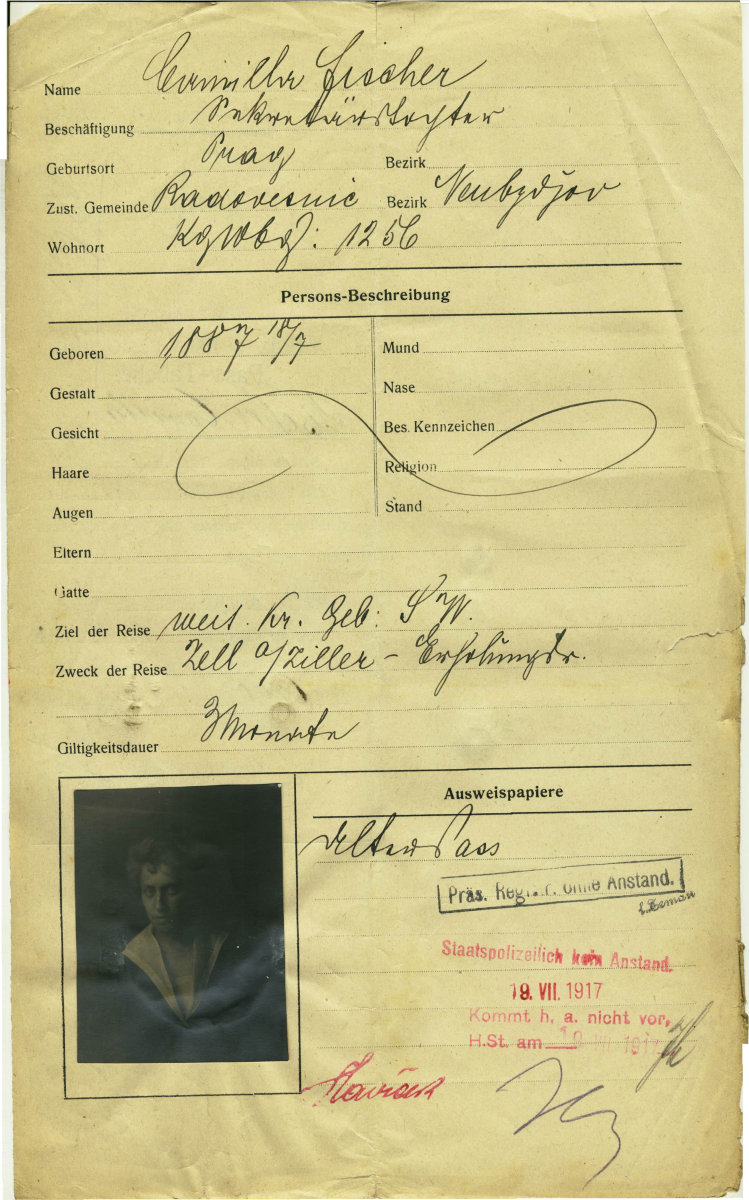 Name Camilla Fischer
Beschäftigung Sekretärstochter
Geburtsort Prag Bezirk
Zust. Gemeinde Radovesnic Bezirk Neubydžov
Wohnort KglWbg: 1256
Persons-Beschreibung
Geboren 1887 18/7 Mund
Gestalt Nase
Gesicht Bes. Kennzeichen
Haare Religion
Augen Stand
Eltern
Gatte
Ziel der Reise weit. Kr. Geb:
Zweck der Reise Zell a/Ziller – Erholungsr.
Giltigkeitsdauer 3 Monate
Ausweispapiere
Alter Pass
Präs. ohne Anstand.
Staatspolizeilich kein Anstand.
19. VII. 1917
Kommt h. a. nicht vor,
H.St. am 19 VII 1917